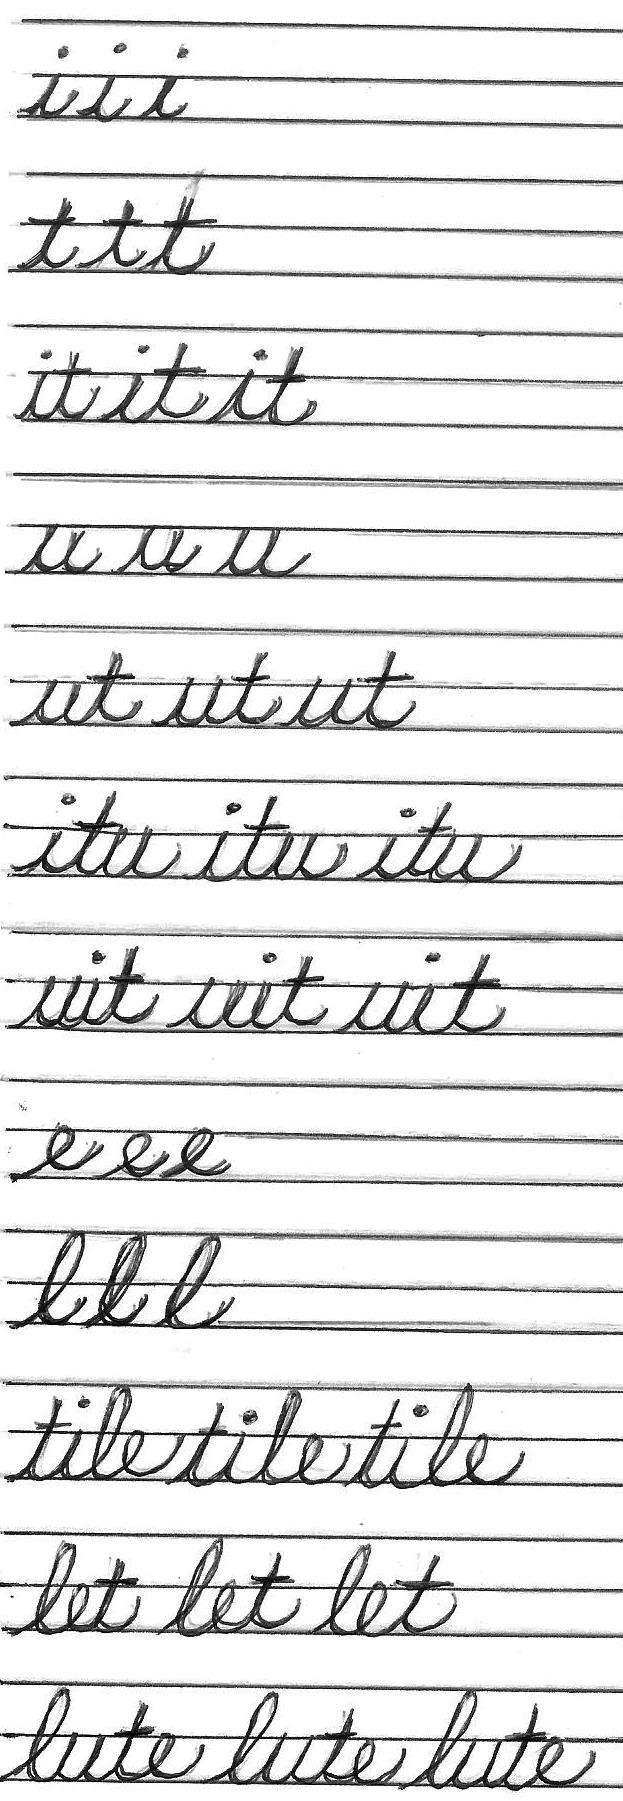 i i i
t t t
it it it
u u u
ut ut ut
itu itu itu
uit uit uit
e e e
l l l
tile tile tile
let let let
lute lute lute